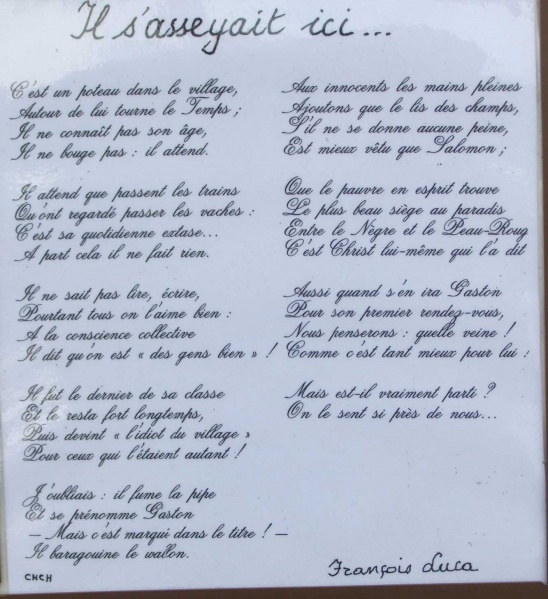 Il s'asseyait ici...
C'est un poteau dans le village,
Autour de lui tourne le Temps ;
Il ne connaît pas son âge,
Il ne bouge pas : il attend.
Il attend que passent les trains
Qu'ont regardé passer les vaches :
C'est sa quotidienne extase...
A part cela il ne fait rien.
Il ne sait pas lire, écrire,
Pourtant tous on l'aime bien :
A la conscience collective
Il dit qu'on est « des gens bien » !
Il fut le dernier de sa classe
Et le resta fort longtemps,
Puis devint « l'idiot du village »
Pour ceux qui l'étaient autant !
J'oubliais : il fume la pipe
Et se prénomme Gaston
— Mais c'est marqui dans le titre ! —
Il baragouine le wallon.
Aux innocents les mains pleines
Ajoutons que le lis des champs,
S'il ne se donne aucune peine,
Est mieux vêtu que Salomon ;
Que le pauvre en esprit trouve
Le plus beau siège au paradis
Entre le Nègre et le Peau-Roug
C'est Christ lui-même qui l'a dit
Aussi quand s'en ira Gaston
Pour son premier rendez-vous,
Nous penserons : quelle veine !
Comme c'est tant mieux pour lui !
Mais est-il vraiment parti ?
On le sent si près de nous...
CHCH
François Luca